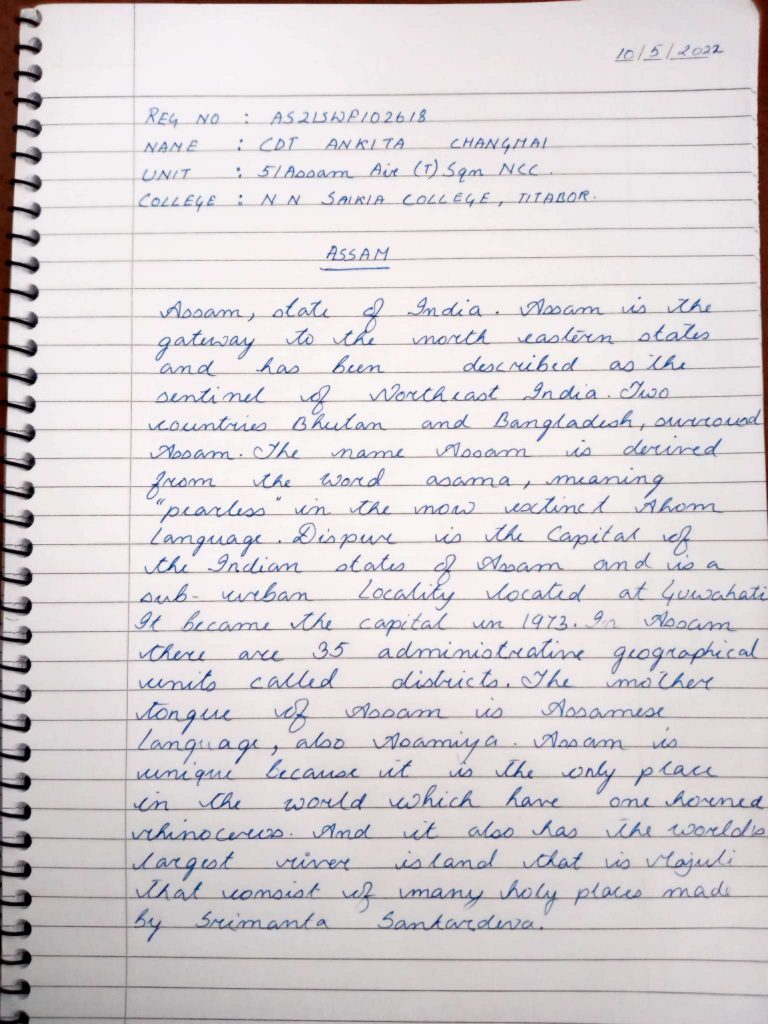 10/5/2022
REG NO : AS21SWP102618
NAME : CDT ANKITA CHANGMAI
UNIT : 51Assam Air (T) Sqn NCC.
COLLEGE : N N SAIKIA COLLEGE, TITABOR.
ASSAM
Assam, state of India. Assam is the
gateway to the north eastern states
and has been described as the
sentinel of Northeast India. Two
countries Bhutan and Bangladesh, surround
Assam. The name Assam is derived
from the word asama, meaning
"pearless" in the now extinct Ahom
language. Dispur is the Capital of
the Indian states of Assam and is a
sub-urban Locality located at Guwahati
It became the capital in 1973. In Assam
there are 35 administrative geographical
units called districts. The mother
tongue of Assam is Assamese
language, also Asamiya. Assam is
unique because it is the only place
in the world which have one horned
rhinoceros. And it also has the world's
largest river island that is Majuli
that consist of many holy places made
by Srimanta Sankardeva.